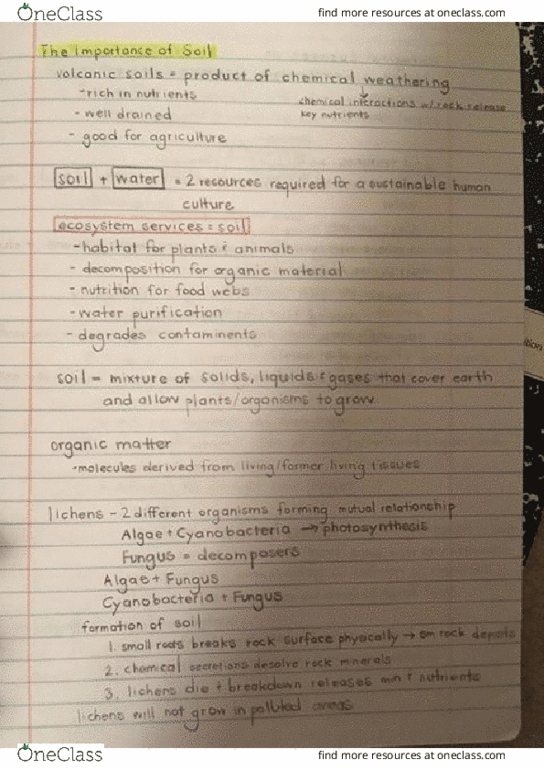 OneClass
find more resources at oneclass.com
The Importance of Soil
volcanic soils = product of chemical weathering
-rich in nutrients
chemical interactions w/rock release
key nutrients
- well drained
- good for agriculture
soil + water = 2 resources required for a sustainable human
culture
ecosystem services = soil
-habitat for plants & animals
- decomposition for organic material
- nutrition for food webs
-water purification
- degrades contaminents
soil = mixture of solids, liquids & gases that cover earth
and allow plants/organisms to grow
organic matter
-molecules derived from living/former living tissues
lichens - 2 different organisms forming mutual relationship
Algae + Cyanobacteria → photosynthesis
Fungus = decomposers
Algae + Fungus
Cyanobacteria + Fungus
formation of soil
1. small roots breaks rock surface physically → sm rock deposits
2. chemical secretions desolve rock minerals
3. lichens die + breakdown releases min + nutrients
lichens will not grow in polluted areas
OneClass
find more resources at oneclass.com